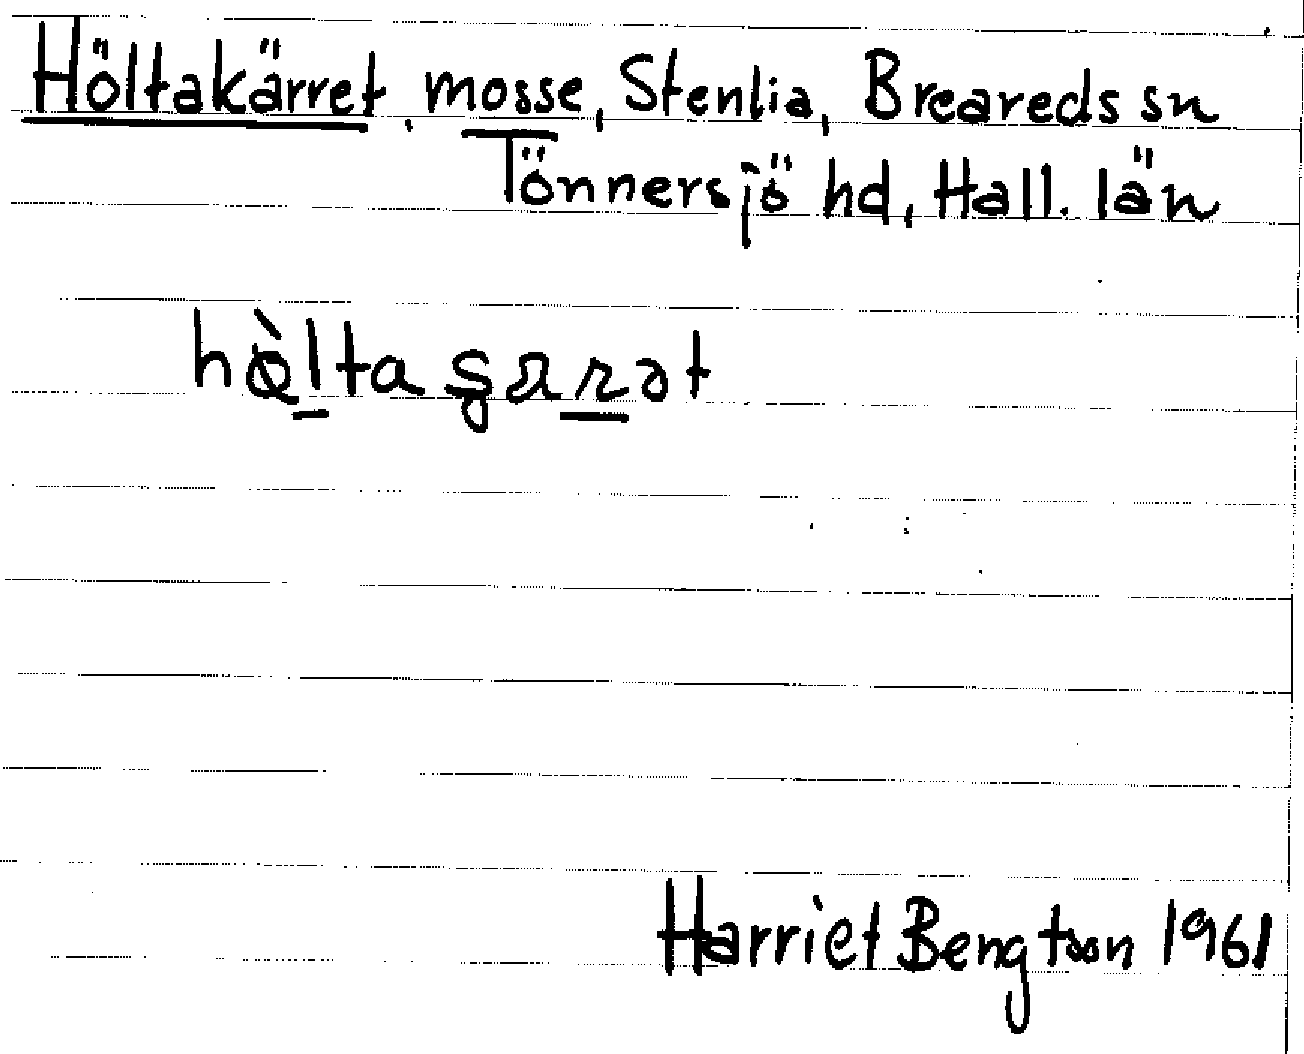 Höltakärret, mosse, Stenlia, Breareds sn
Tönnersjö hd, Hall. län
Harriet Bengtson 1961